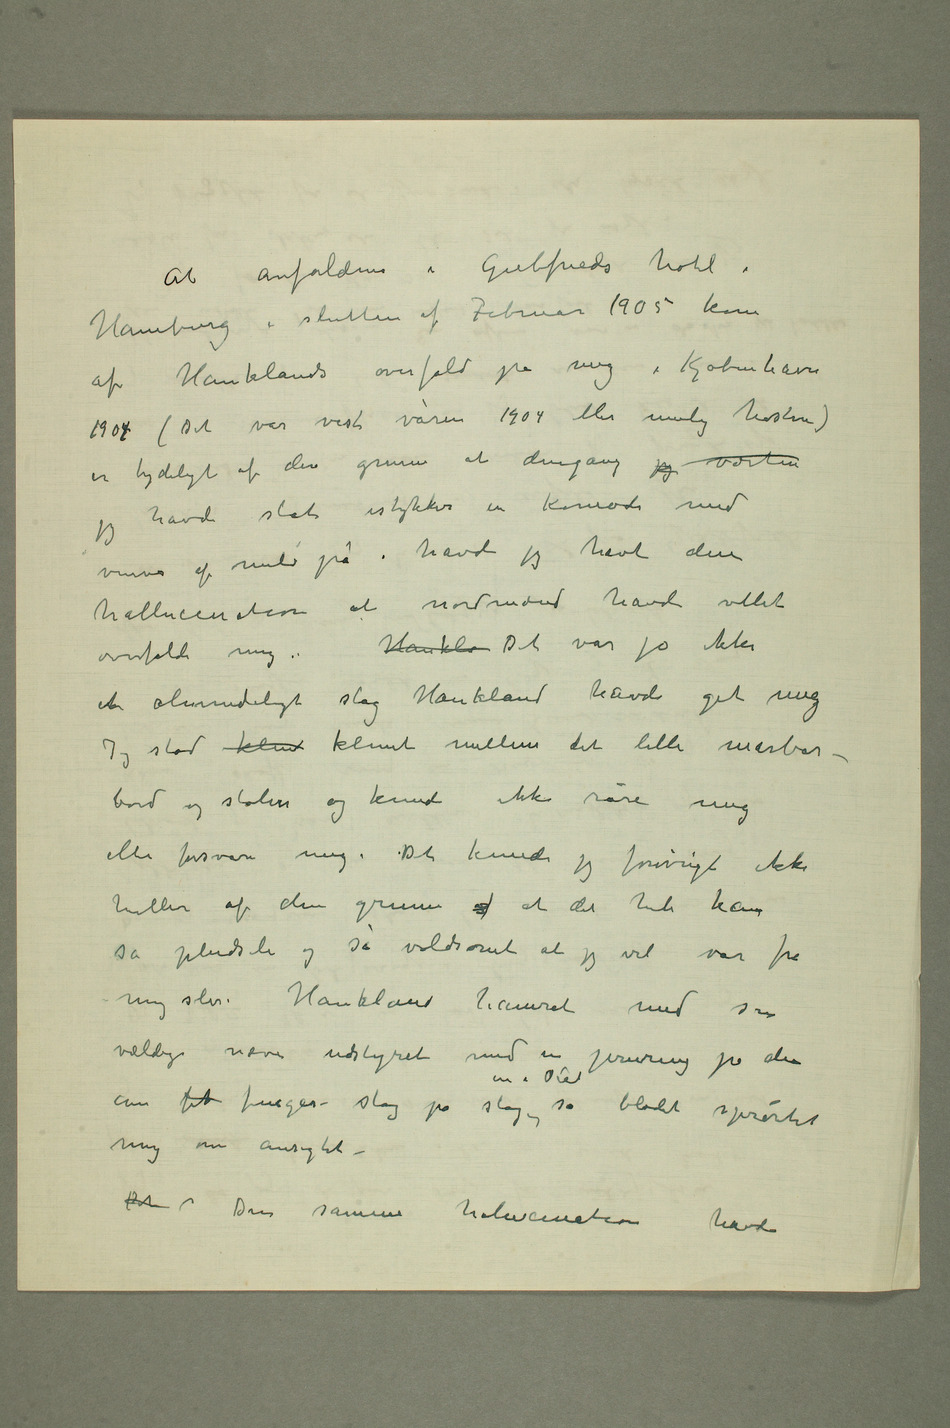 At anfaldene i Giebfrieds hotel i
Hamburg i slutten af Februar 1905 kom
af Hauklands overfald på mig i Kjøbenhavn
1904 (Det var vist våren 1904 eller mulig høsten)
er tydeligt af den grunn at dengang jeg værten
jeg havde slåt istykker en Komode med
venver af mild på i havde jeg havt den
hallucination at nordmænd havde villet
overfalde mig. Haukla Det var jo ikke
et almindeligt slag Haukland havde get mig
Jeg stod klemt klemt mellem det lille marbor-
bord og stolen og kunde ikke røre mig
eller forsvare mig. Det kunde jeg forøvrigt ikke
heller af den grunn af at det hele kam
så pludseli og så voldsomt at jeg vel var fra
mig slev. Haukland hamret med sin
vældige næve udstyret med en jernring på den
ene fit finger- slag på slag, så blodet sprøitet
mig om ansigtet-
Det Den samme halucination havde